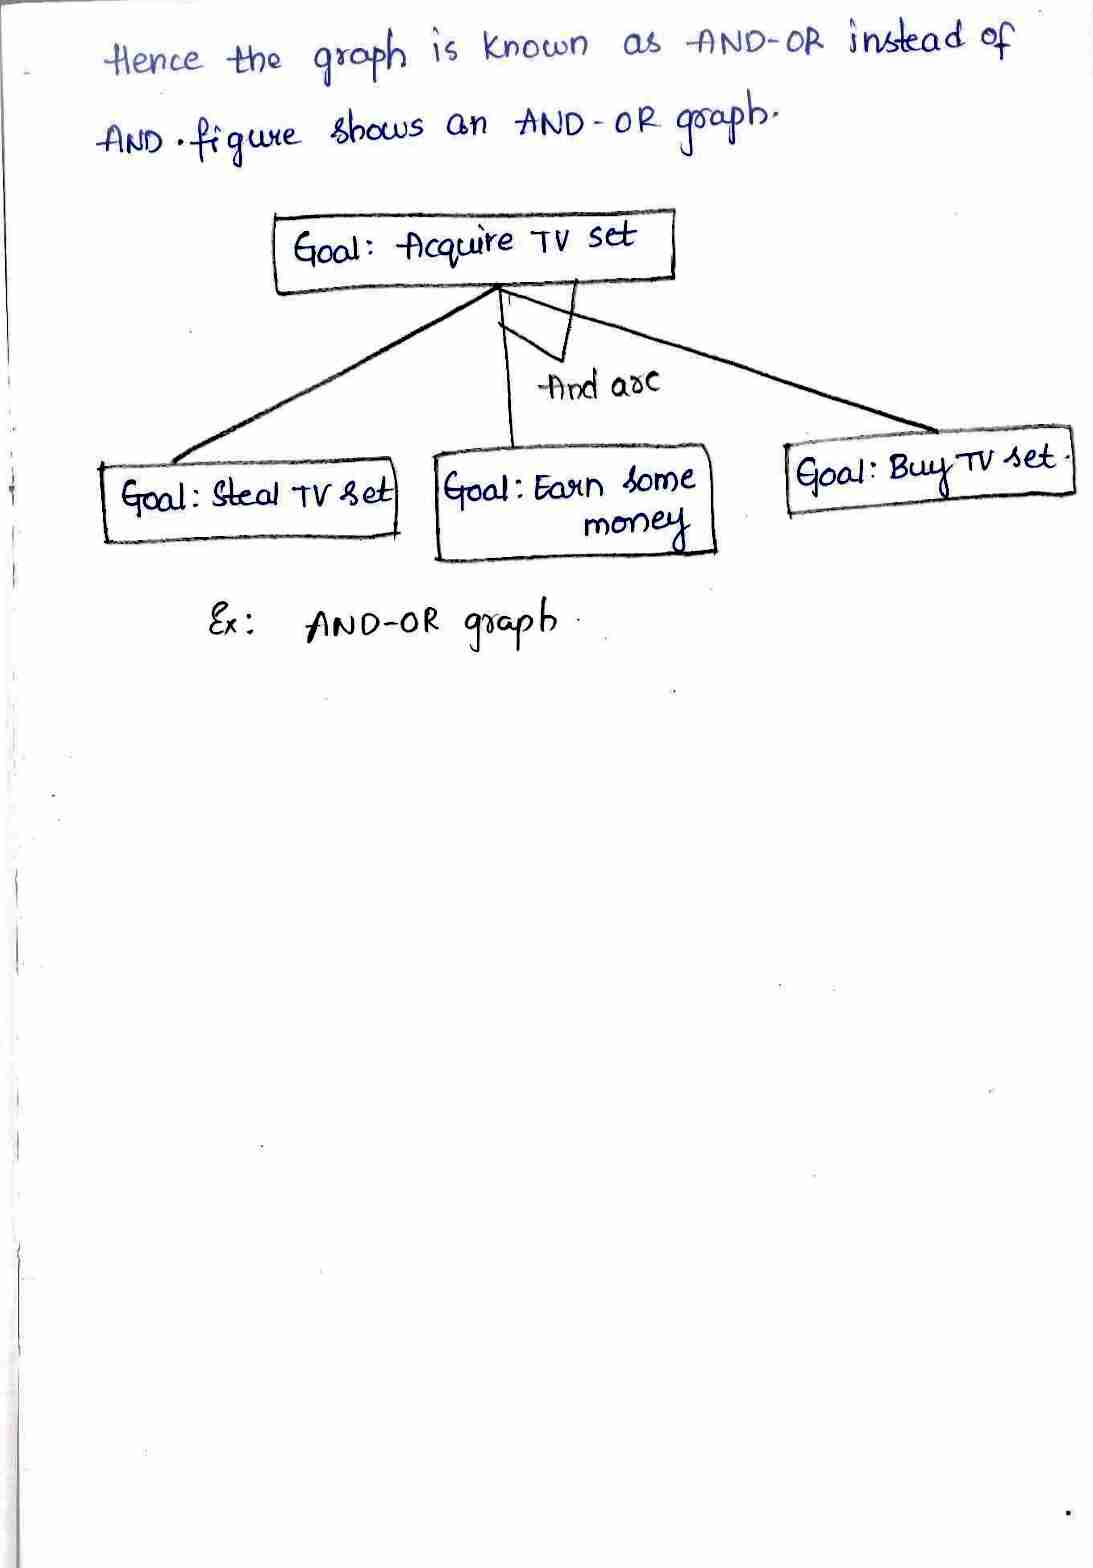 Hence the graph is known as AND-OR instead of
AND. figure shows an AND-OR graph.
Goal: Acquire TV set
And arc
Goal: Steal TV set
Goal: Earn some
money
Goal: Buy TV set.
Ex: AND-OR graph.